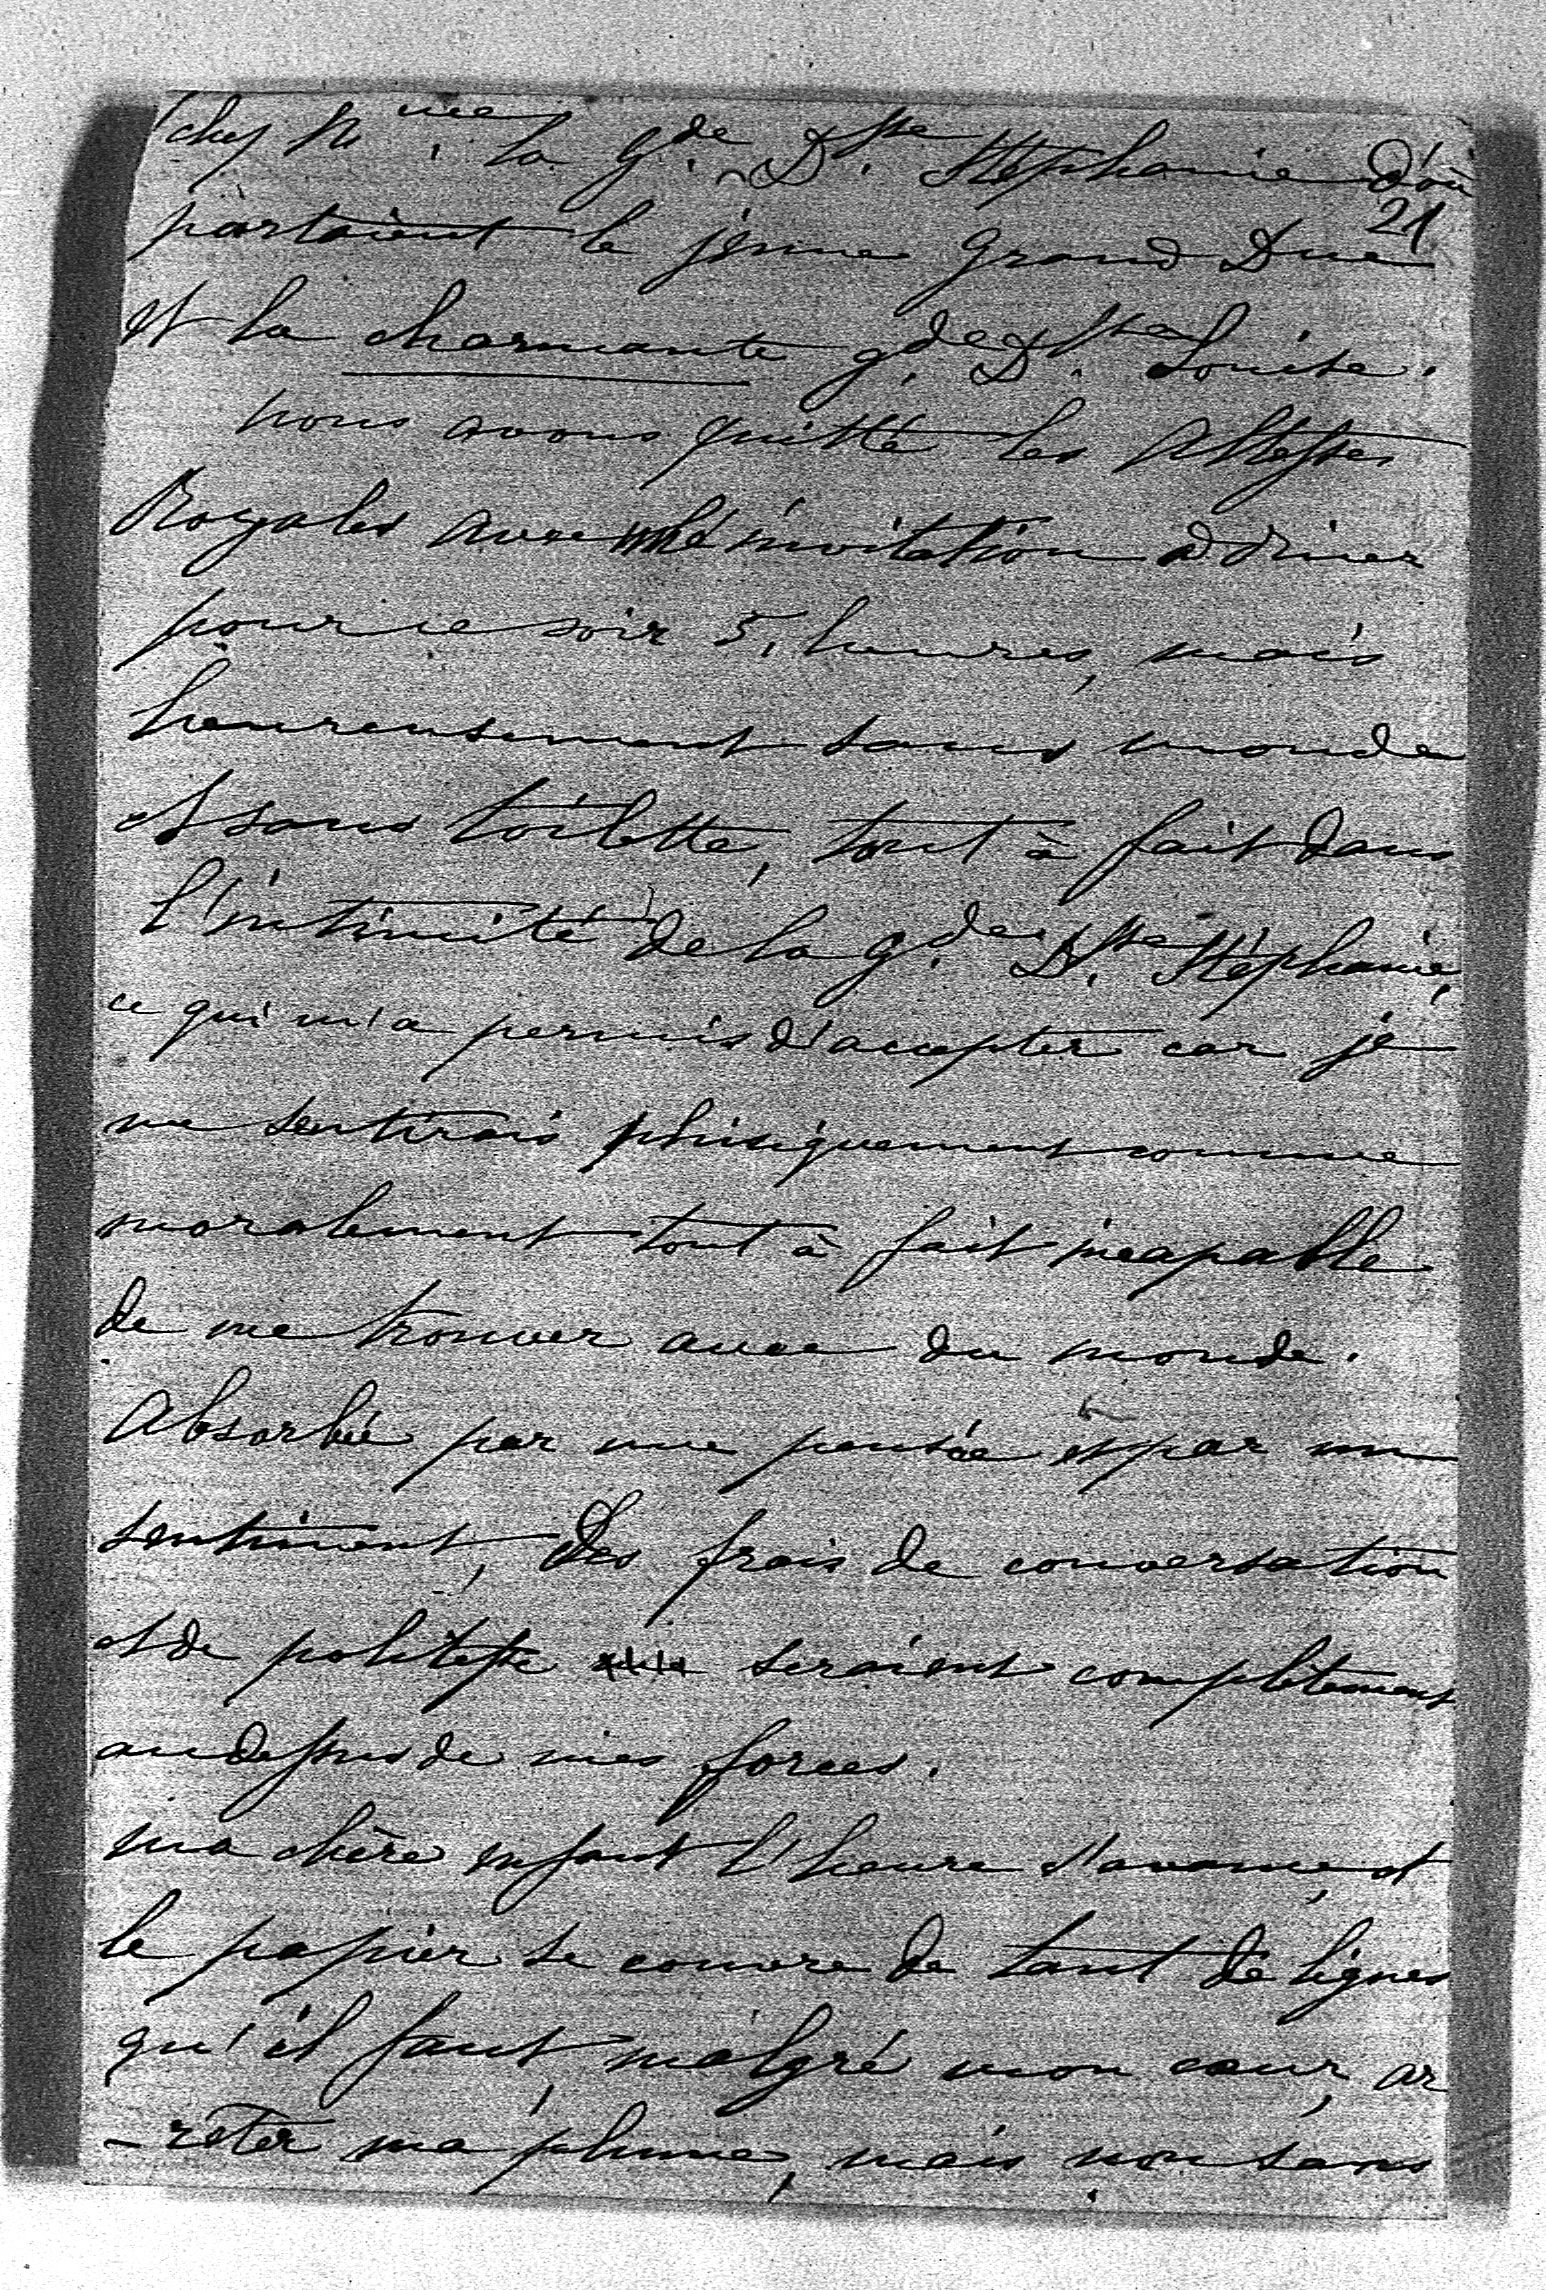 chez Mme. la gde. Dsse. Stéphanie d'où
21
partaient le jeune Grand Duc
et la charmante gde. Dsse. Louise.
nous avons quitté les Altesses
Royales avec une invitation à diner
pour ce soir 5, heures, mais
heureusement sans monde
et sans toilette, tout à fait dans
l'intimité de la gde. Dsse. Stéphanie,
ce qui m'a permis d'accepter car je
me sentirais phisiquement comme
moralement tout à fait incapable
de me trouver avec du monde.
Absorbée par une pensée et par un
sentiment, des frais de conversation
et de politesse seraient complètement
audessus de mes forces.
ma chère enfant l'heure s'avance, et
le papier se couvre de tant de lignes
qu'il faut, malgré mon cœur, ar
-rêter ma plume, mais non sans